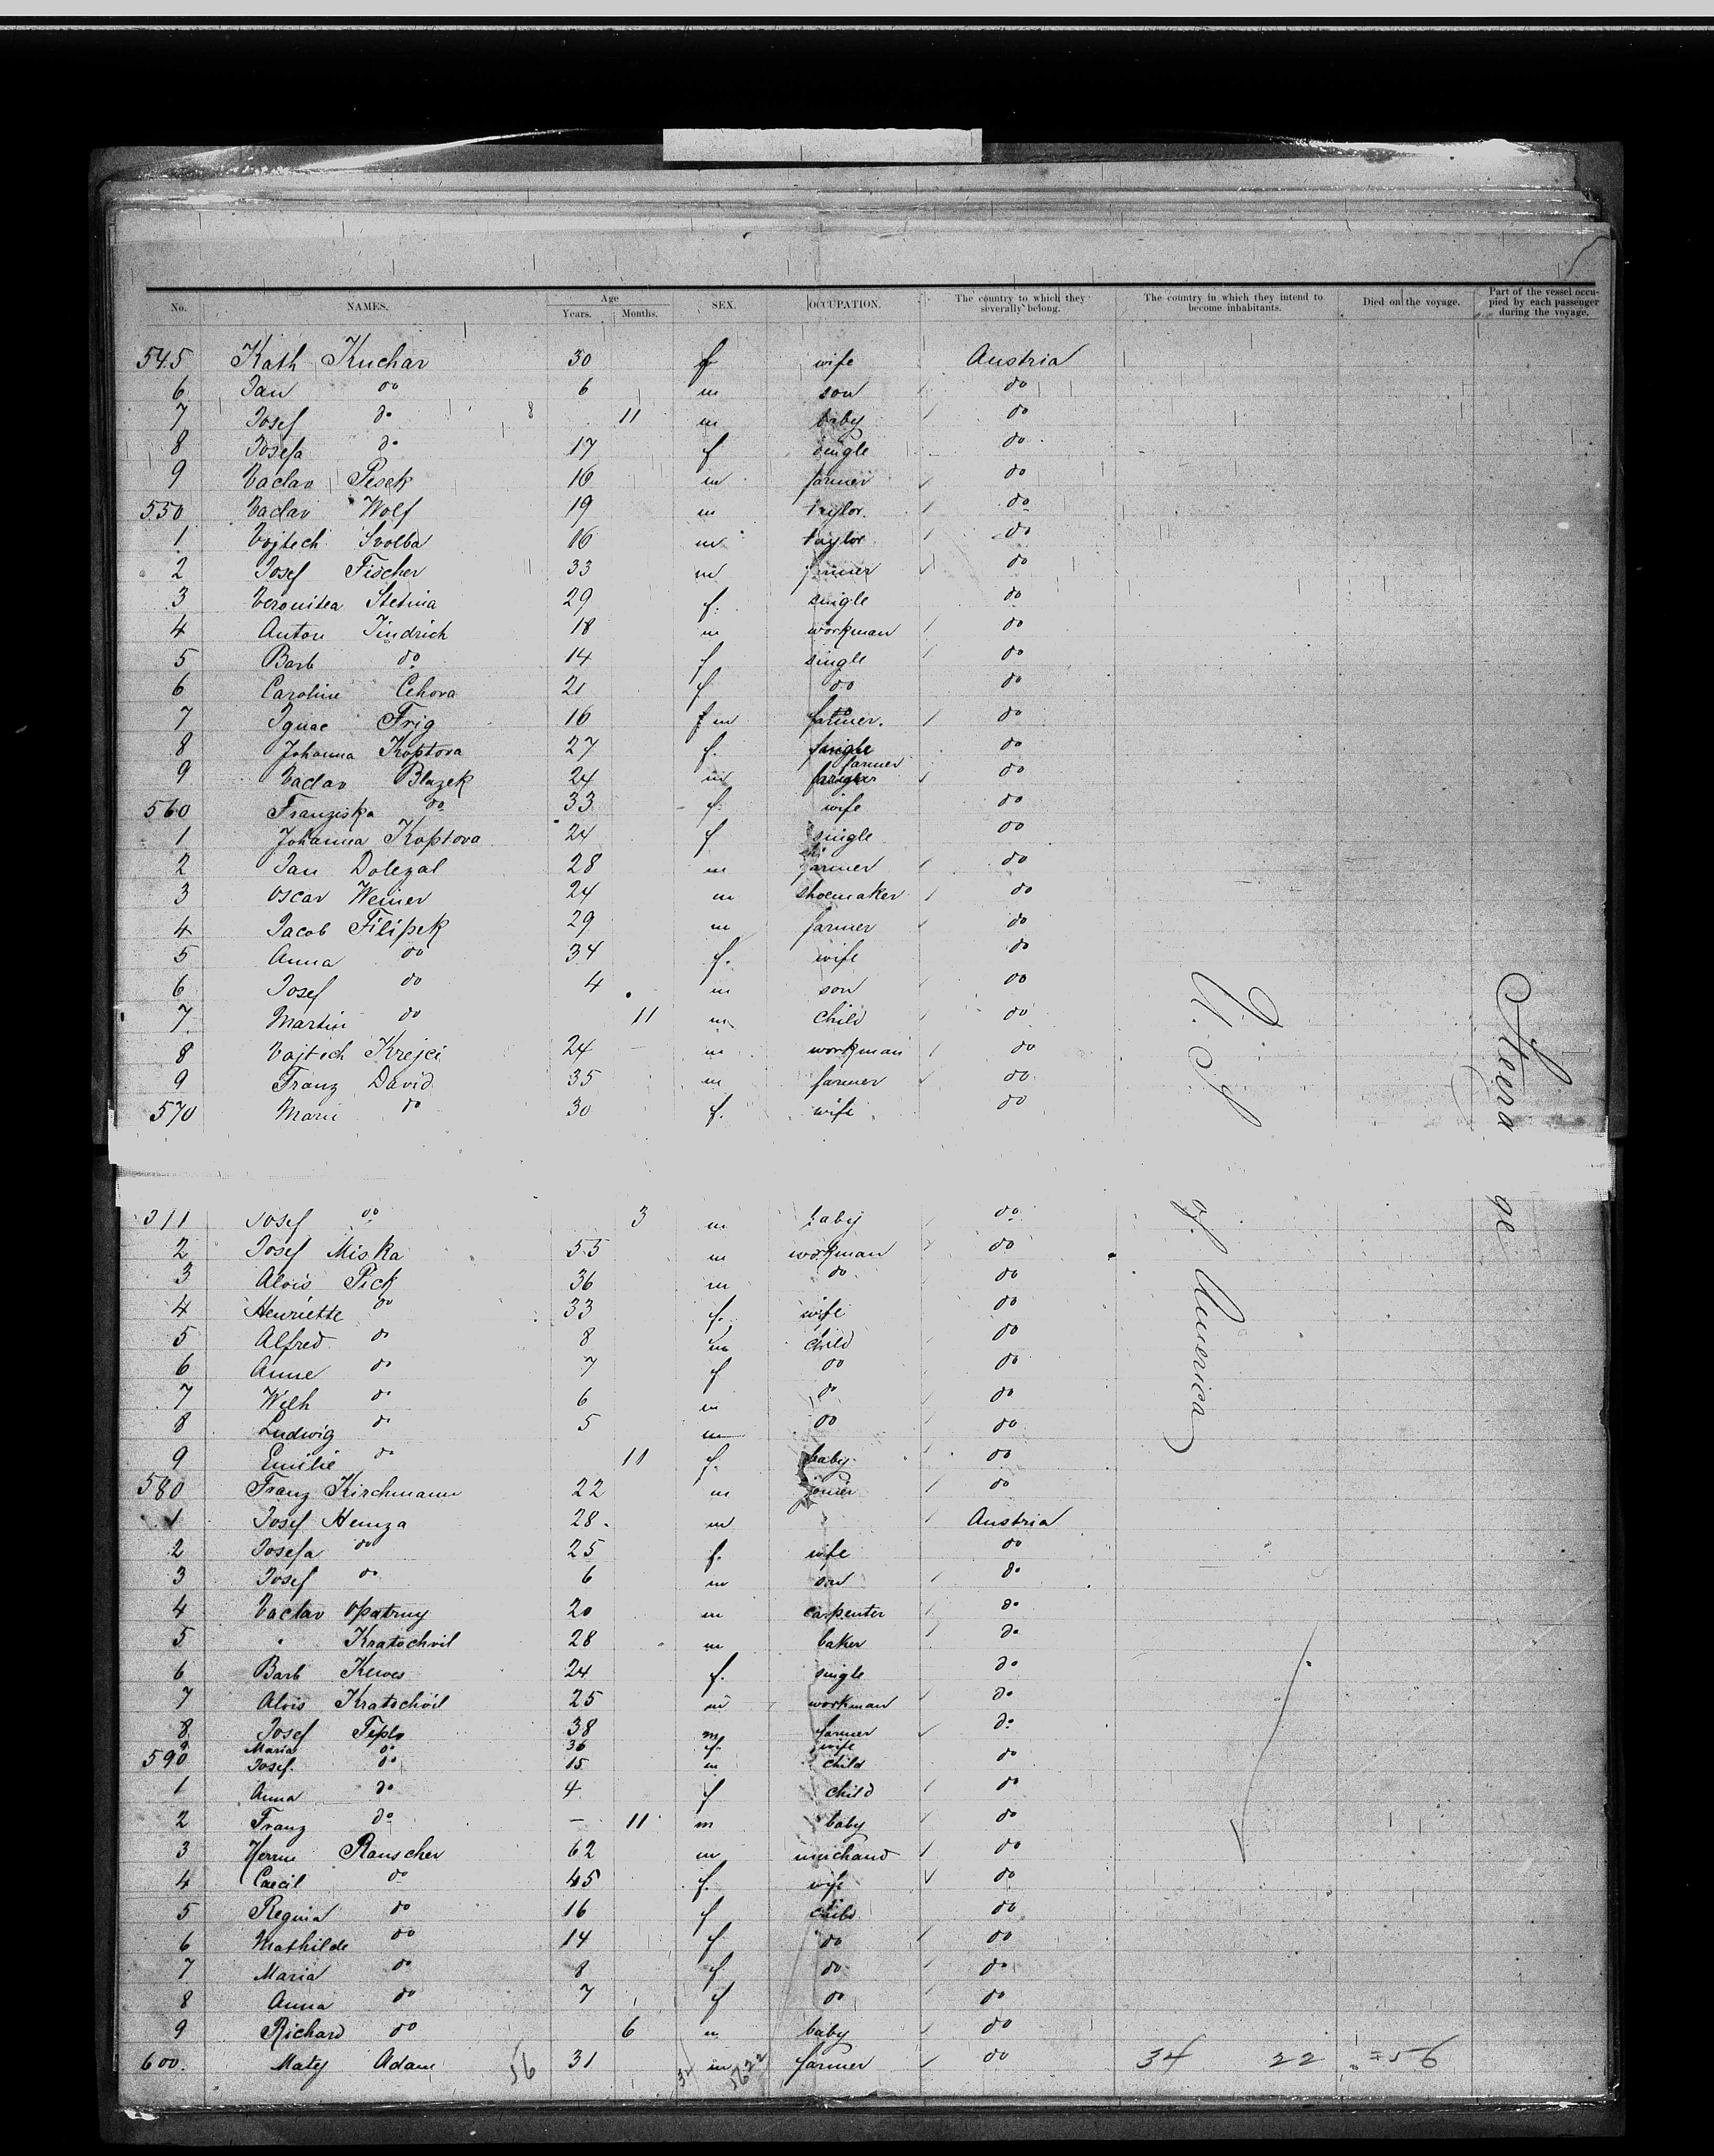 No. NAMES. Age Years. Months. SEX. OCCUPATION. The country to which they severally belong. The country in which they intend to become inhabitants. Died on the voyage. Part of the vessel occupied by each passenger during the voyage.
545 Kath Kuchar 30 f wife Austria
6 Jan do 6 m son do
7 Josef do 8 11 m baby do
8 Josefa do 17 f single do
9 Vaclav Pesek 16 m farmer do
550 Vaclav Wolf 19 m taylor. do
1 Vojtech Svolba 16 m taylor do
2 Josef Fischer 33 m farmer do
3 Veronika Stetina 29 f. single do
4 Anton Jindrich 18 m workman do
5 Barb do 14 f single do
6 Caroline Cehova 21 f do do
7 Ignac Frig 16 f m farmer. do
8 Johanna Koptova 27 f. single do
9 Vaclav Blazek 24 m farmer do
560 Franziska do 33 f wife do
1 Johanna Koptova 24 f single do
2 Jan Dolezal 28 m farmer do
3 Oscar Weiner 24 m shoemaker do
4 Jacob Filipek 29 m farmer do
5 Anna do 34 f. wife do
6 Josef do 4 m son do
7 Martin do 11 m child do
8 Vojtech Krejci 24 m workman do
9 Franz David 35 m farmer do
570 Marie do 30 f. wife do
U. S. of America
Steerage
Josef do 3 m baby do
2 Josef Miska 55 m workman do
3 Alois Pick 36 m do do
4 Henriette do 33 f. wife do
5 Alfred do 8 m child do
6 Anne do 7 f do do
7 Wilh do 6 m do do
8 Ludwig do 5 m do do
9 Emilie do 11 f. baby do
580 Franz Kirchmann 22 m joiner do
1 Josef Hemza 28 m Austria
2 Josefa do 25 f. wife do
3 Josef do 6 m son do
4 Vaclav Opatrny 20 m carpenter do
5 " Kratochvil 28 m baker do
6 Barb 24 f. single do
7 Alois Kratochvil 25 m workman do
8 Josef Teplo 38 m farmer do
9 Maria do 36 f wife
590 Josef. do 15 m child do
1 Anna do 4 f child do
2 Franz do — 11 m baby do
3 Herm Rauscher 62 m merchand do
4 Caecil do 45 f. wife do
5 Regina do 16 f child do
6 Mathilde do 14 f do do
7 Maria do 8 f do do
8 Anna do 7 f do do
9 Richard do 6 m baby do
600. Matej Adam 56 31 m farmer do 34 22 = 56